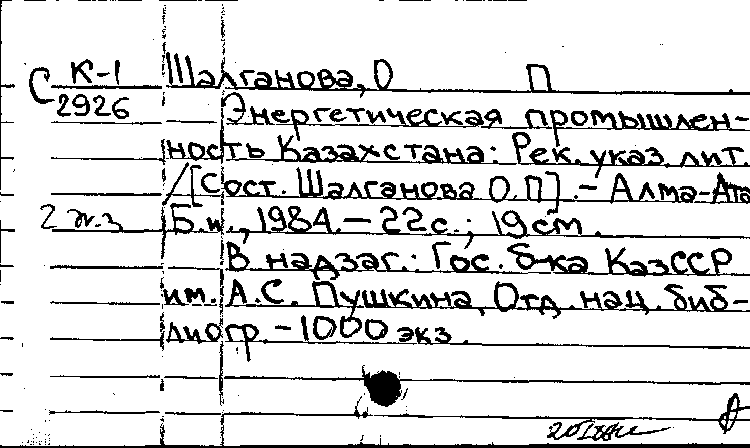 С К-1 Шалганова, О П
2926 Энергетическая промышлен-
ность Казахстана: Рек. указ. лит.
/[Сост. Шалганова О.П]. - Алма-Ата
2 экз Б.и., 1984. - 22 с.; 19 см.
В надзаг.: Гос. б-ка КазССР
им. А.С. Пушкина, Отд. нац. биб-
лиогр. - 1000 экз.